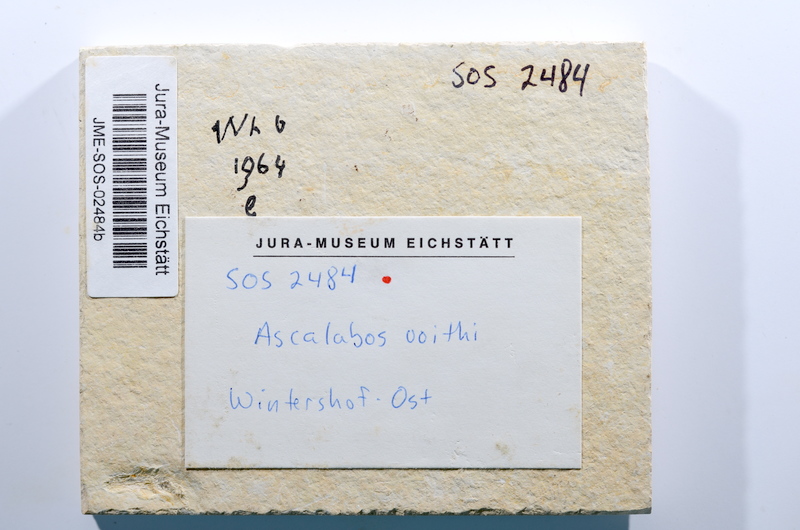 SOS 2484
Jura-Museum Eichstätt
JME-SOS-02484b
1964
e
JURA-MUSEUM EICHSTÄTT
SOS 2484
Ascalabos voithi
Wintershof-Ost